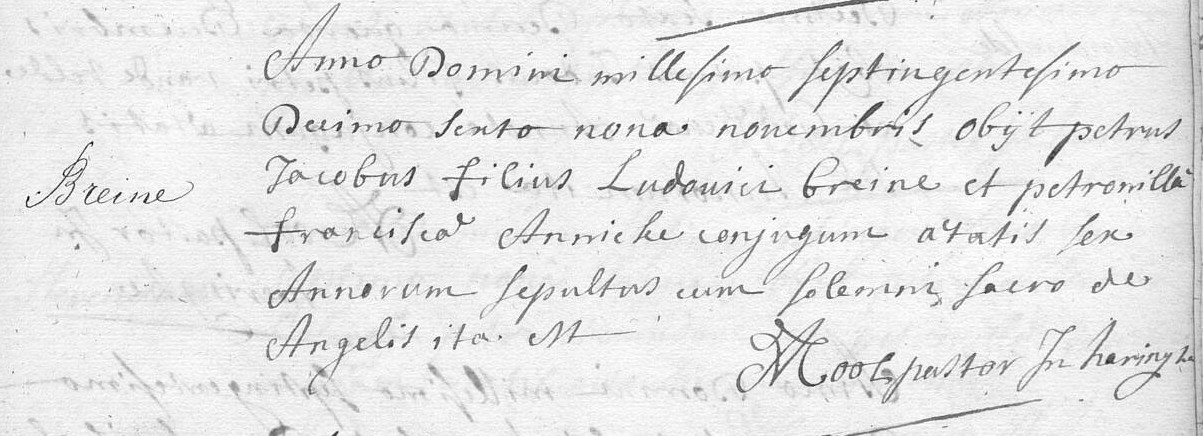 Anno Domini millesimo septingentesimo
Decimo sexto nona novembris obijt petrus
Breine
Jacobus filius Ludovici breine et petronillæ
franciscæ Annicke conjugum ætatis sex
Annorum sepultus cum solemni sacro de
Angelis ita est
Mool pastor In haringhe